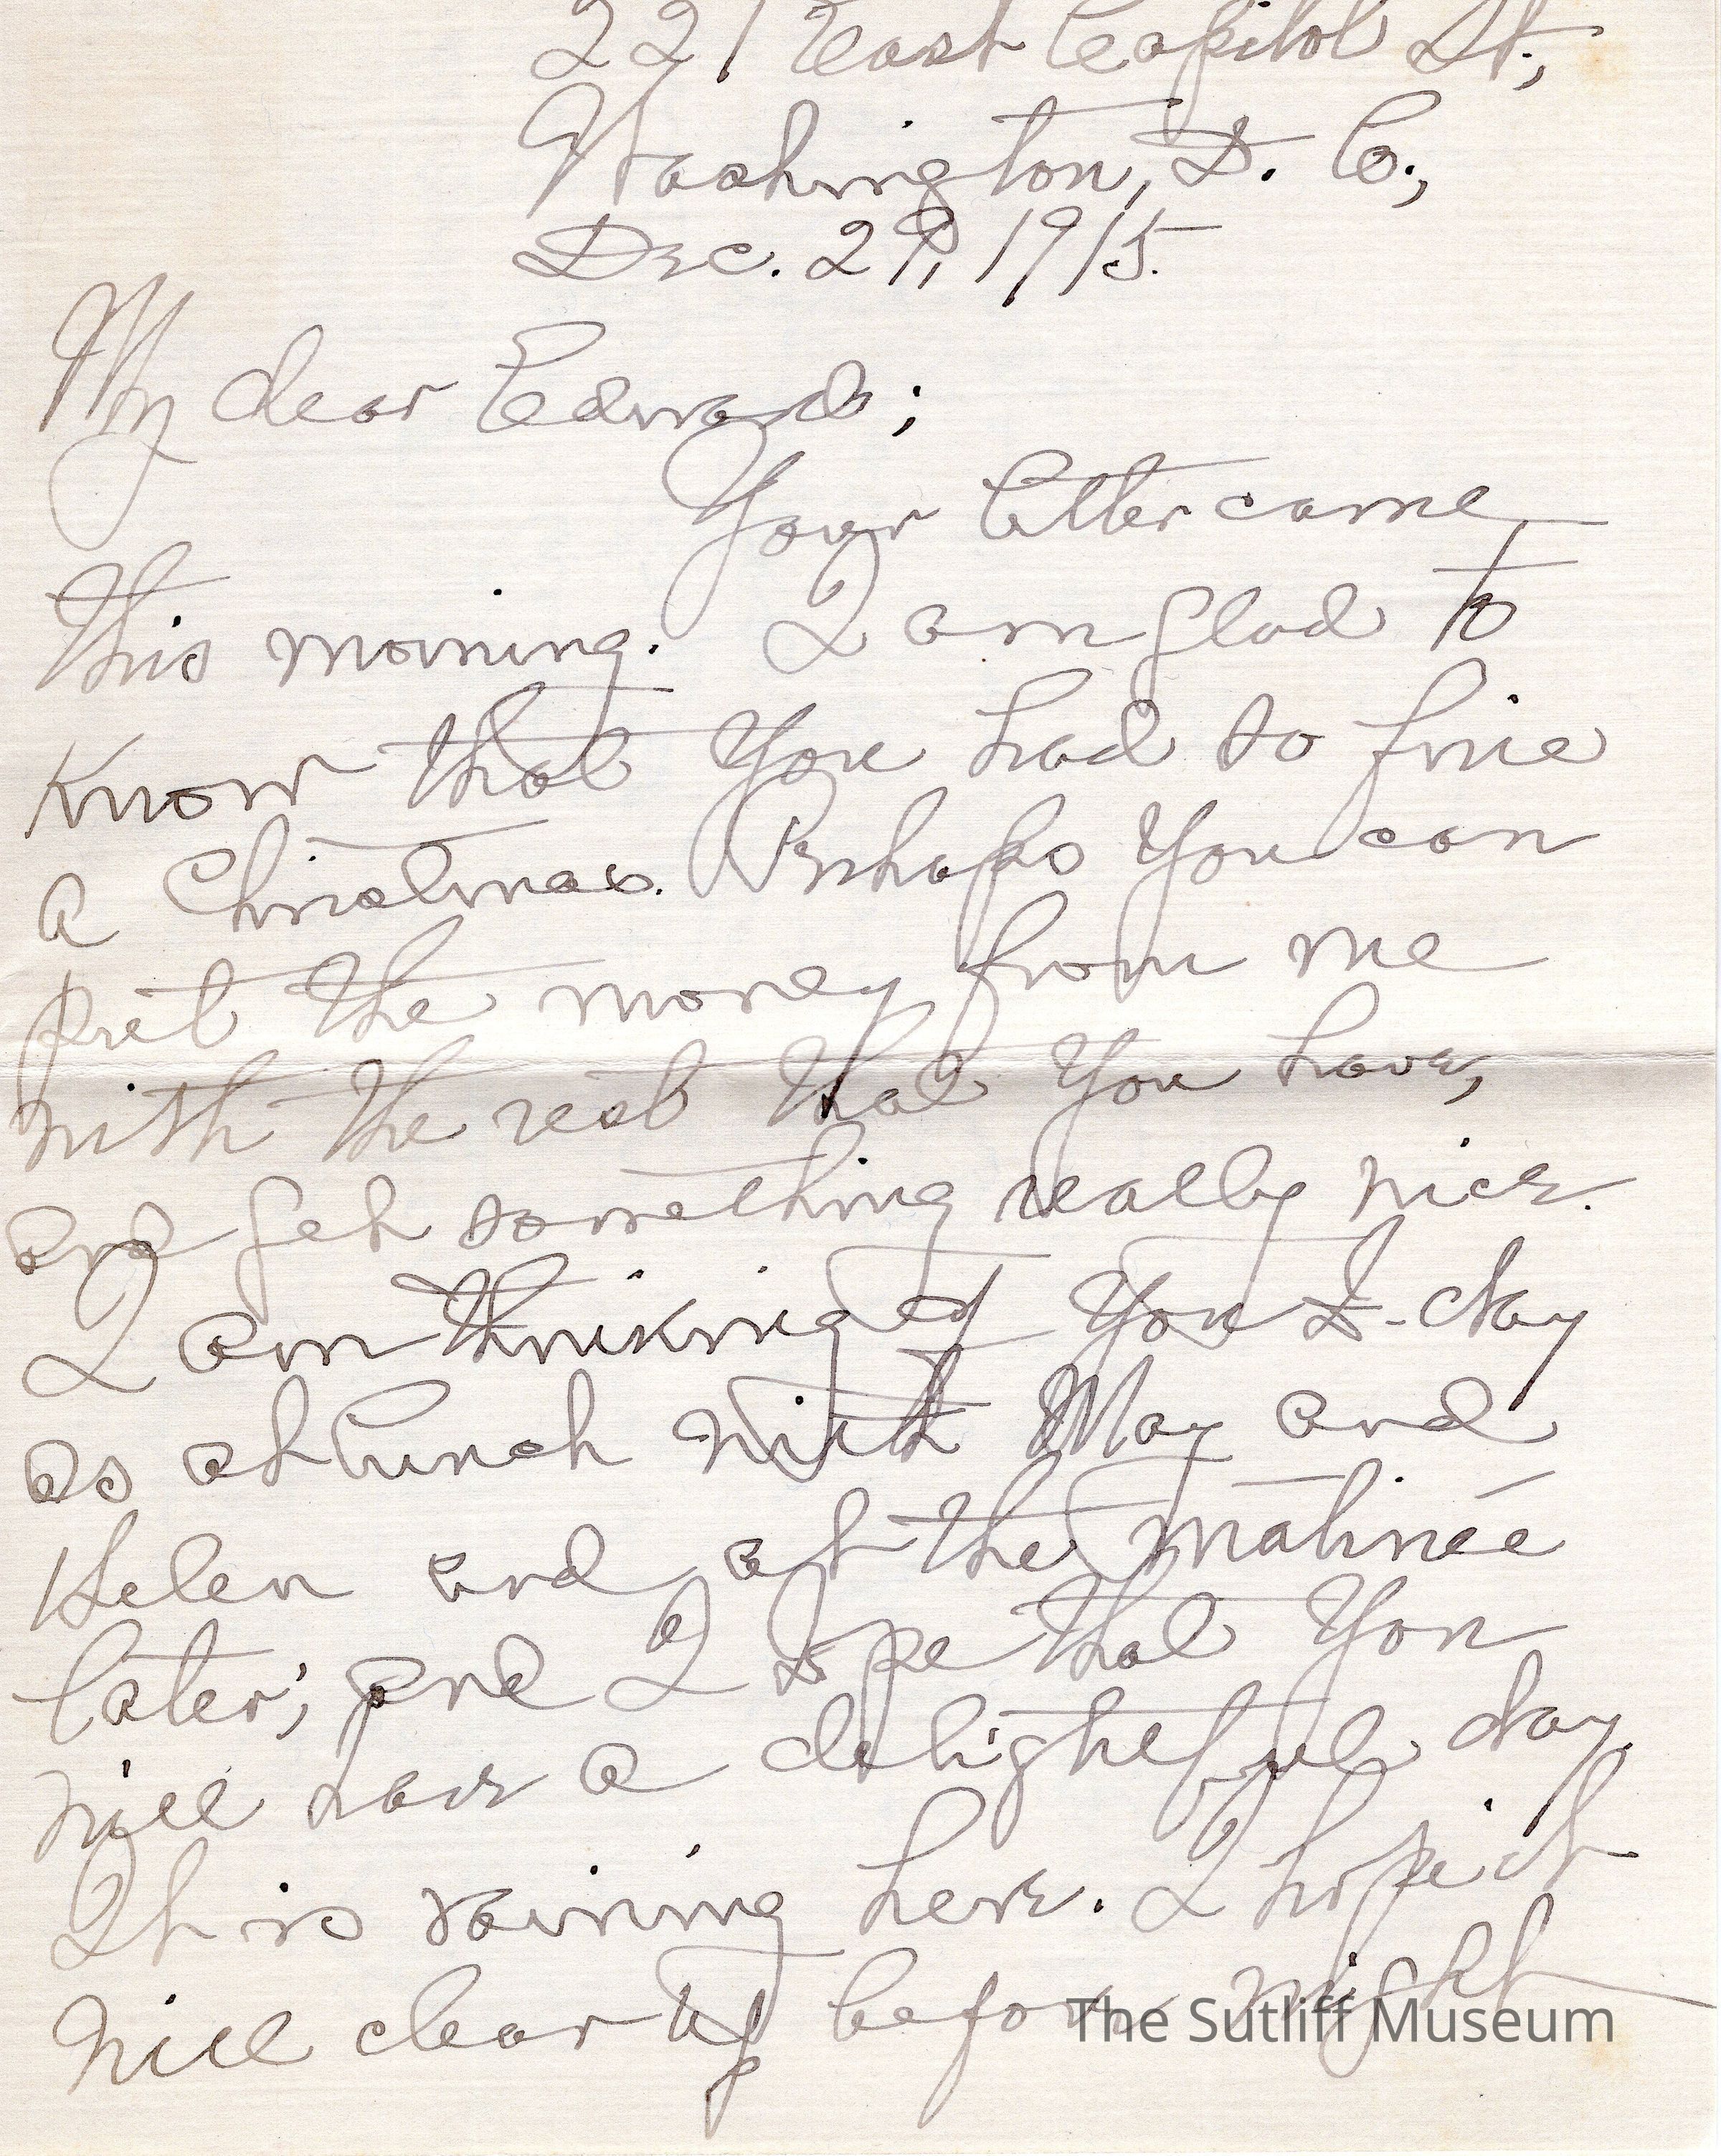 221 East Capitol St.,
Washington, D. C.,
Dec. 29, 1915.
My dear Edward;
Your letter came
this morning. I am glad to
know that you had so fine
a Christmas. Perhaps you can
put the money from me
with the rest that you have,
and get something really nice.
I am thinking of you to-day
as at lunch with May and
Helen and at the matineé
later; and I hope that you
will have a delightful day.
It is raining here. I hope it
will clear up before night
The Sutliff Museum